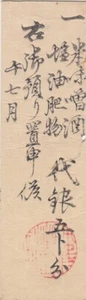 一 米味噌酒
塩油肥物
代銀五分
右御預り置申候
午七月